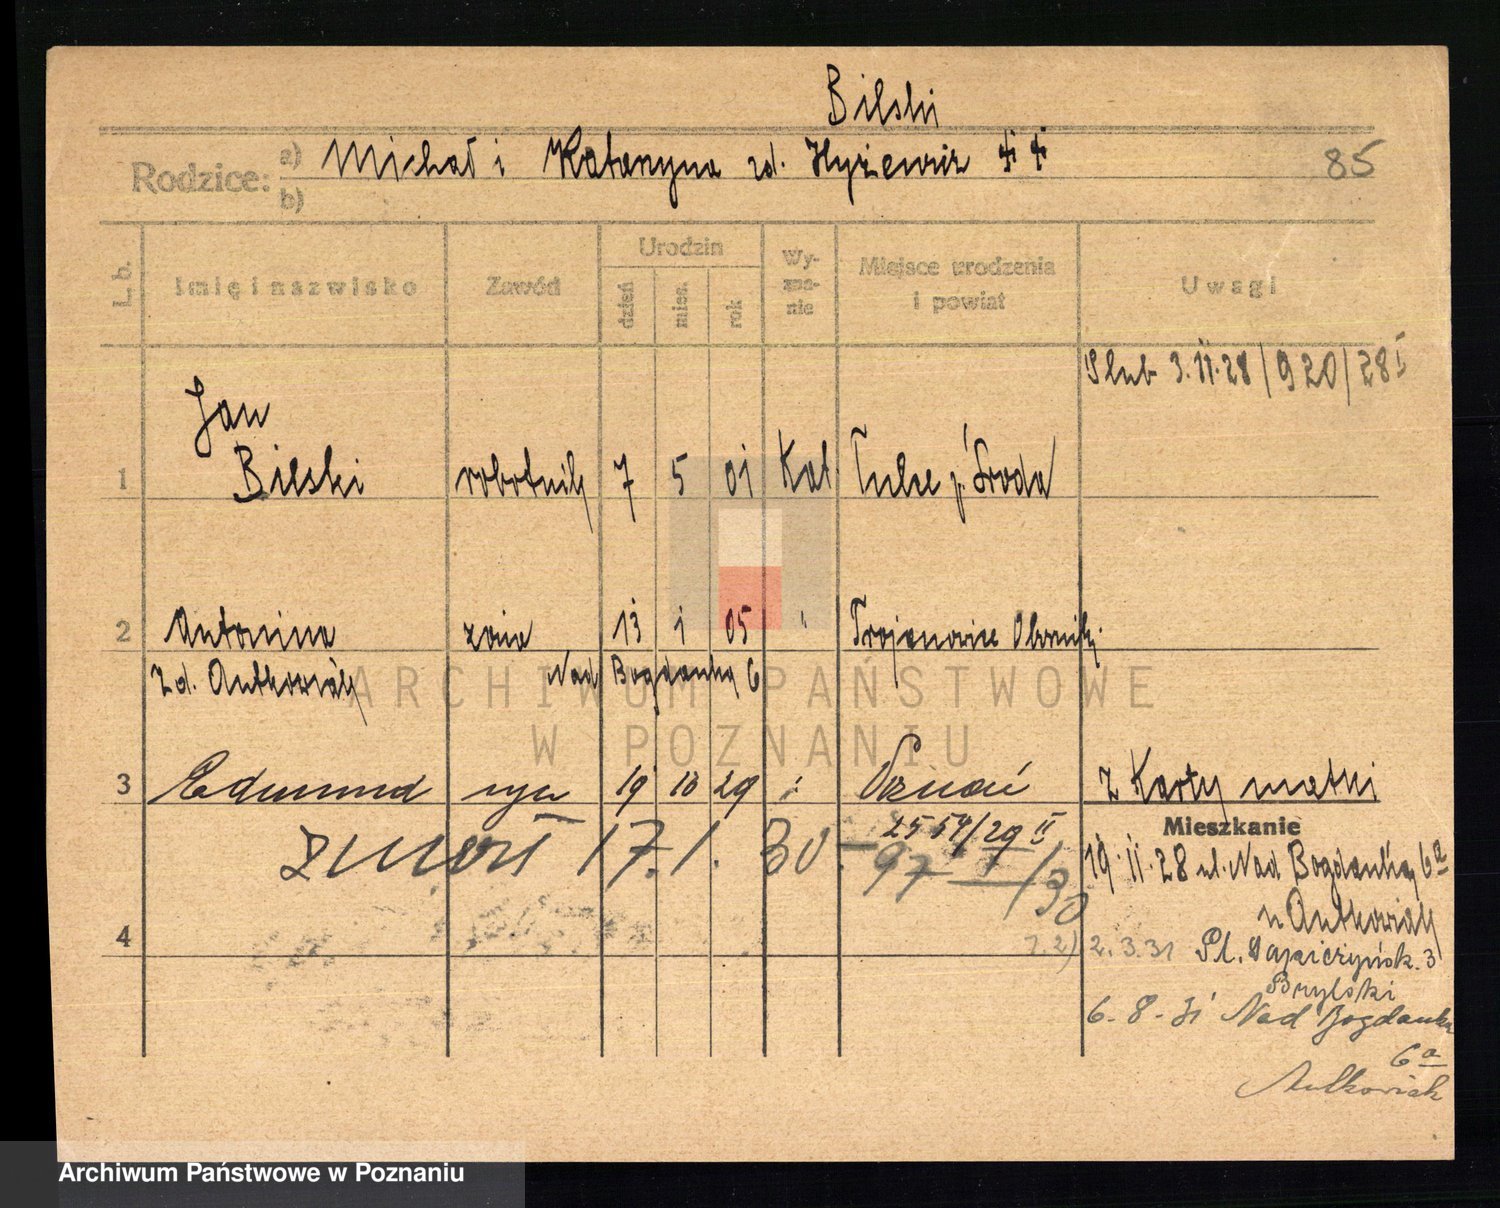 Bilski
Rodzice: a) Michał i Katarzyna zd. Hyżewicz
b)
85
L. b.
Imię i nazwisko
Zawód
Urodzin
dzień
mies.
rok
Wy-
zna-
nie
Miejsce urodzenia
i powiat
Uwagi
Ślub 3.11.28/920/28 I
1 Jan
Bilski robotnik 7 5 01 Kat. Tulce p. Środa
2 Antonina żona 13 1 05 " Trojanowice Obornik.
zd. Antkowiak Nad Bogdanką 6
3 Edmund syn 19 10 29 Poznań Z Karty matki
2554/29 II
zmarł 17.1.30. 97/30
Mieszkanie
19.11.28 ul. Nad Bogdanką 6a
u Antkowiak
4
2.3.31 Pl. Sapieżyńsk. 3
Brylski
6.8.31 Nad Bogdanką
6a
Antkowiak
ARCHIWUM PAŃSTWOWE
W POZNANIU
Archiwum Państwowe w Poznaniu